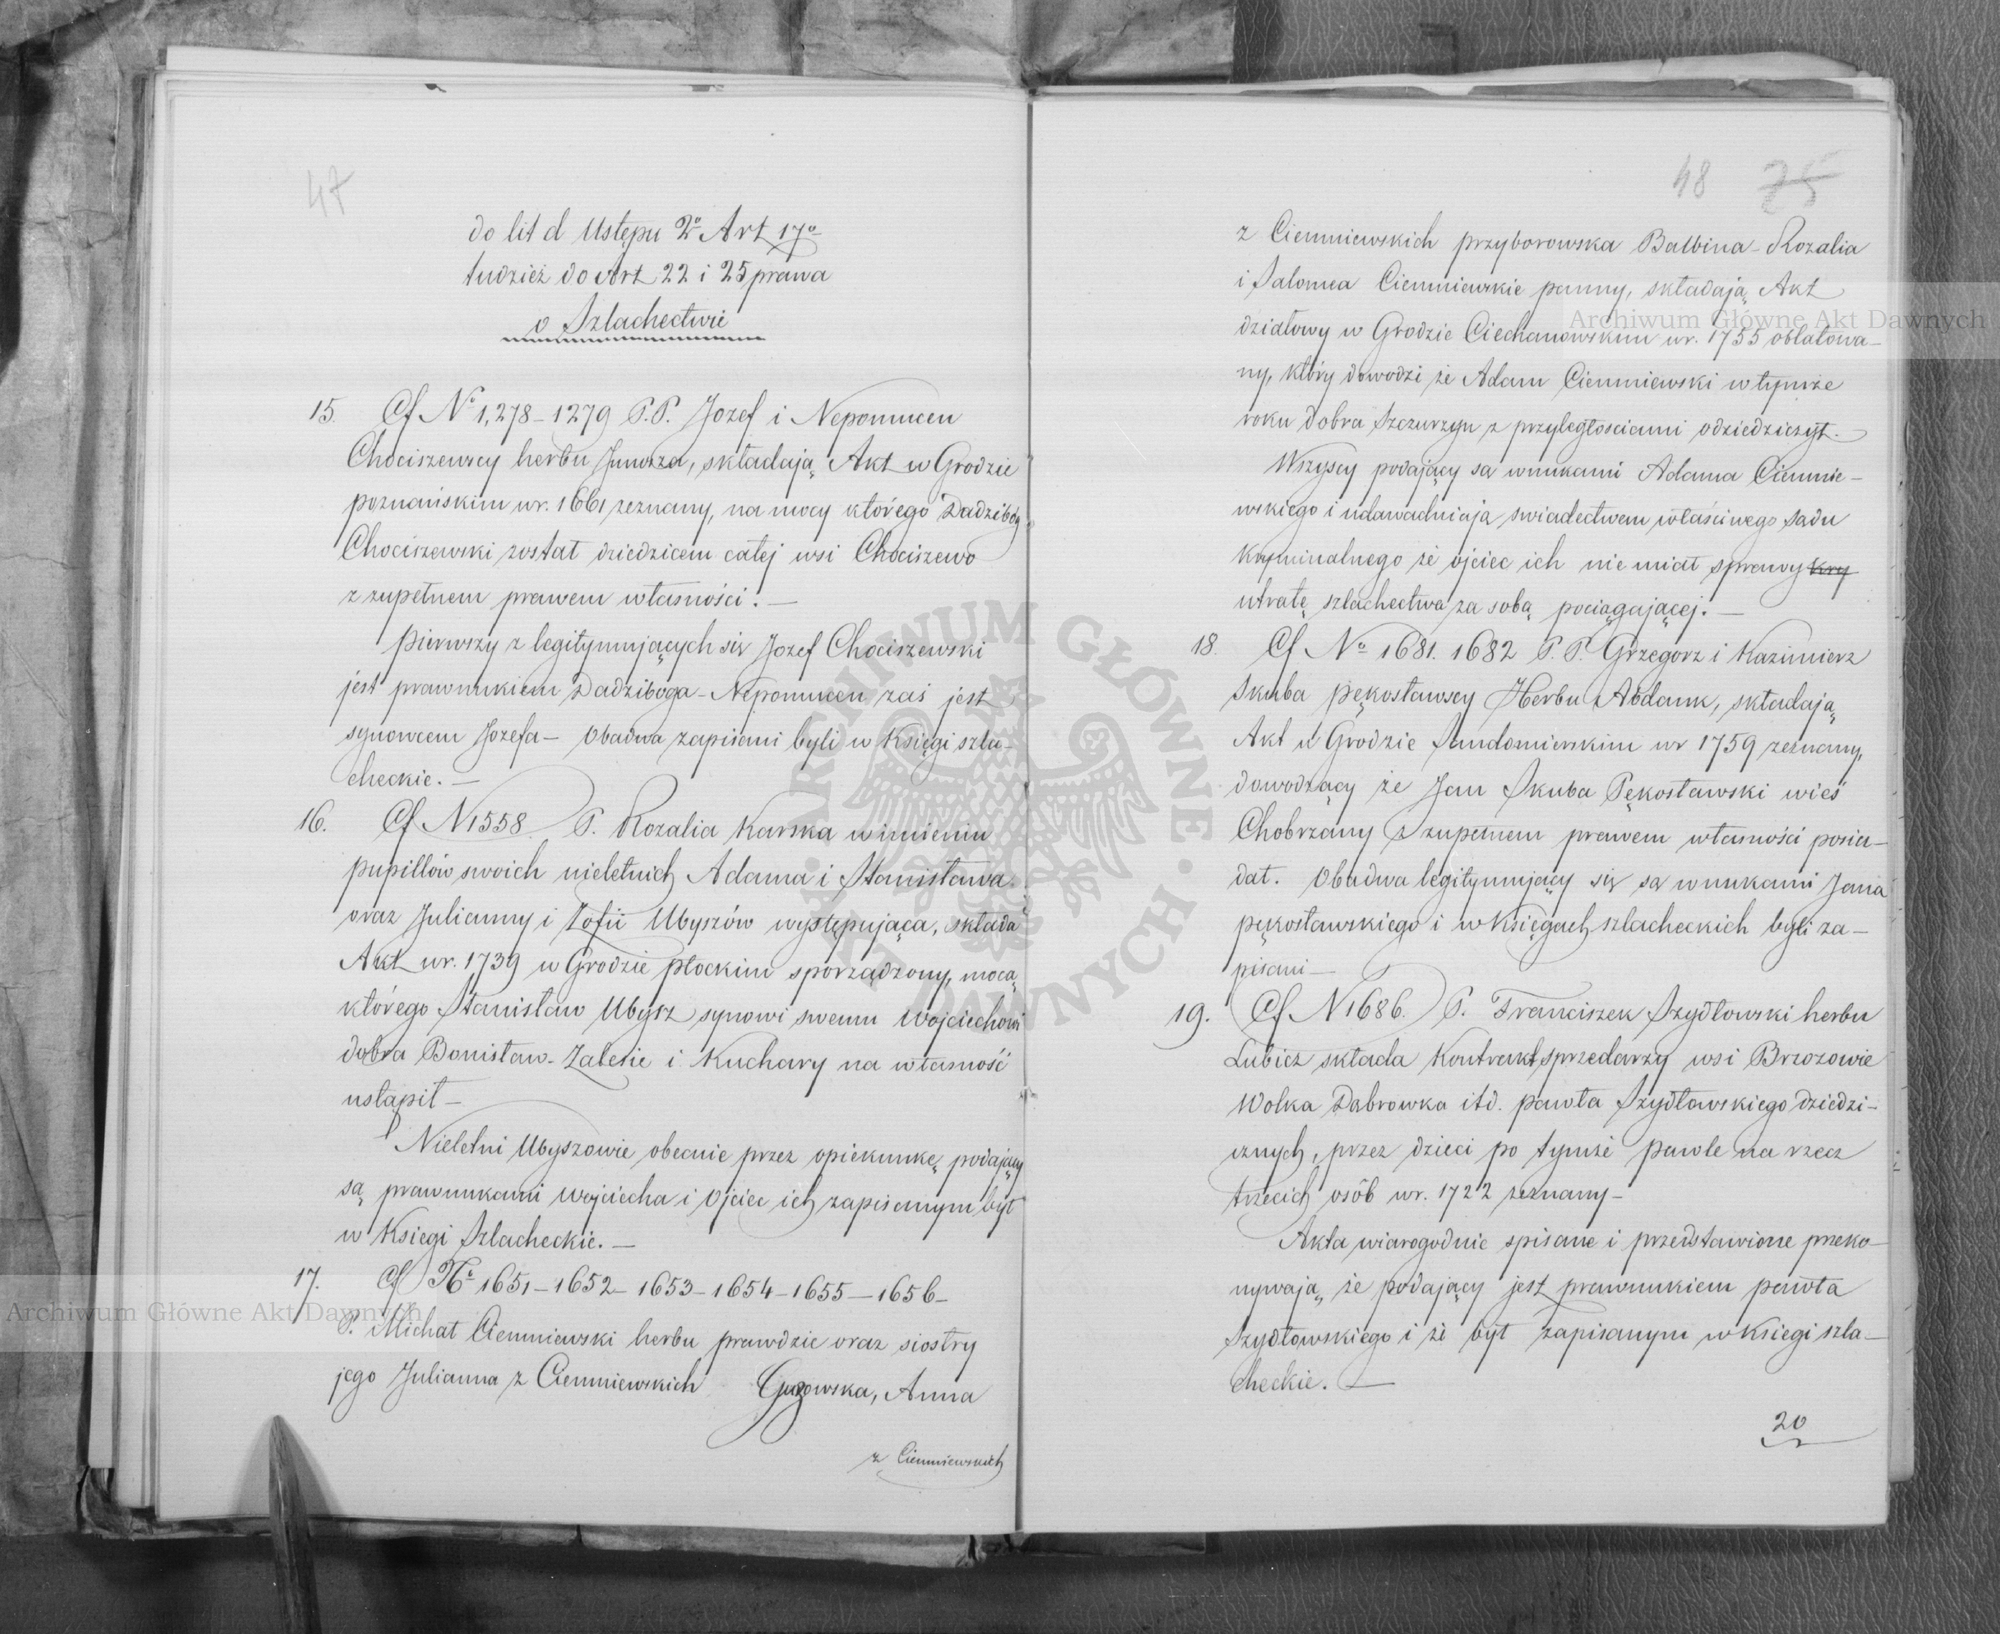 47
do lit d Ustępu 2º Art 17º
tudzież do Art 22 i 25 prawa
o Szlachectwie
15. Cf Nº 1,278 - 1279 P.P. Jozef i Nepomucen
Chociszewscy herbu Junosza, składają Akt w Grodzie
poznańskim w r. 1661 zeznany, na mocy którego Dadzibóg
Chociszewski został dziedzicem całej wsi Chociszewo
z zupełnem prawem własności. —
Pierwszy z legitymujących się Jozef Chociszewski
jest prawnukiem Dadziboga - Nepomucen zaś jest
synowcem Jozefa — Obadwa zapisani byli w Księgi szla-
checkie. —
16. Cf N 1558 P. Rozalia Karska w imieniu
pupillów swoich nieletnich Adama i Stanisława
oraz Julianny i Zofii Ubyszów występująca, składa
Akt w r. 1739 w Grodzie płockim sporządzony, mocą
którego Stanisław Ubysz synowi swemu Wojciechowi
dobra Bonisław - Zalesie i Kuchary na własność
ustąpił —
Nieletni Ubyszowie obecnie przez opiekunkę podający
są prawnukami Wojciecha i Ojciec ich zapisanym był
w Księgi Szlacheckie. —
17. Cf Nº 1651 - 1652 - 1653 - 1654 - 1655 - 1656 -
P. Michał Ciemniewski herbu prawdzic oraz siostry
jego Julianna z Ciemniewskich Guzowska, Anna
z Ciemniewskich
48 75
z Ciemniewskich przyborowska Balbina - Rozalia
i Salomea Ciemniewskie panny, składają Akt
działowy w Grodzie Ciechanowskim w r. 1755 oblatowa-
ny, który dowodzi że Adam Ciemniewski w tymże
roku dobra Szczurzyn z przyległościami odziedziczył. —
Wszyscy podający są wnukami Adama Ciemnie-
wskiego i udawadniają swiadectwem właściwego Sądu
kryminalnego że ojciec ich nie miał sprawy kry
utratę szlachectwa za sobą pociągającej. —
18. Cf Nº 1681. 1682 P.P. Grzegorz i Kazimierz
Skuba pękosławscy Herbu Abdank, składają
Akt w Grodzie Sandomierskim w r 1759 zeznany,
dowodzący że Jan Skuba Pękosławski wieś
Chobrzany z zupełnem prawem własności posia-
dał. Obadwa legitymujący się są wnukami Jana
pękosławskiego i w Księgach szlacheckich byli za-
pisani —
19. Cf N 1686. P. Franciszek Szydłowski herbu
Lubicz składa Kontrakt sprzedarży wsi Brzozowie
Wolka Dabrowka itd. pawła Szydłowskiego dziedzi-
cznych, przez dzieci po tymże pawle na rzecz
trzecich osób w r. 1722 zeznany —
Akta wiarogodnie spisane i przedstawione przeko-
nywają, że podający jest prawnukiem pawła
Szydłowskiego i że był zapisanym w Ksiegi szla-
checkie. —
20
Archiwum Główne Akt Dawnych
Archiwum Główne Akt Dawnych
ARCHIWUM GŁÓWNE AKT DAWNYCH